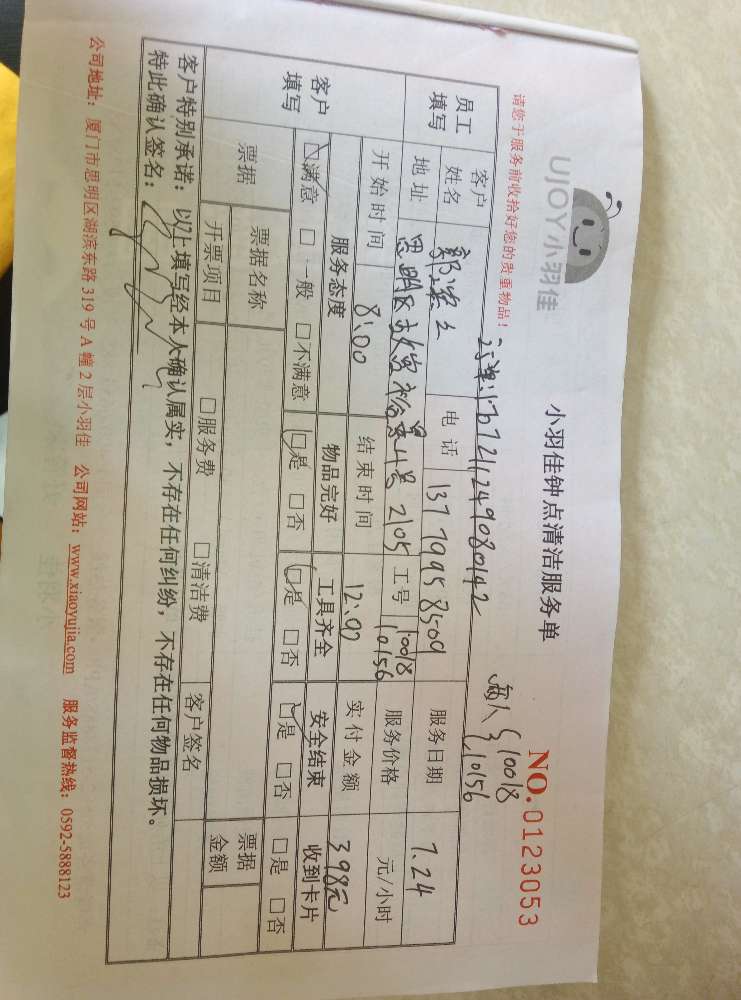 UJOY小羽佳
小羽佳钟点清洁服务单
NO.0123053
请您于服务前收拾好您的贵重物品！
167211249080142
两人 10018
10156
员工填写 客户姓名 电话 13779958509 服务日期 7.24
地址 思明区 2105 工号 10018 10156 服务价格 元/小时
开始时间 8:00 结束时间 12:00 实付金额 398元
客户填写 服务态度 物品完好 工具齐全 安全结束 收到卡片
☑满意 □一般 □不满意 ☑是 □否 ☑是 □否 ☑是 □否 □是 □否
票据 票据名称 客户签名 票据金额
开票项目 □服务费 □清洁费
客户特别承诺：以上填写经本人确认属实，不存在任何纠纷，不存在任何物品损坏。
特此确认签名：
公司地址：厦门市思明区湖滨东路319号A幢2层小羽佳 公司网站：www.xiaoyujia.com 服务监督热线：0592-5888123